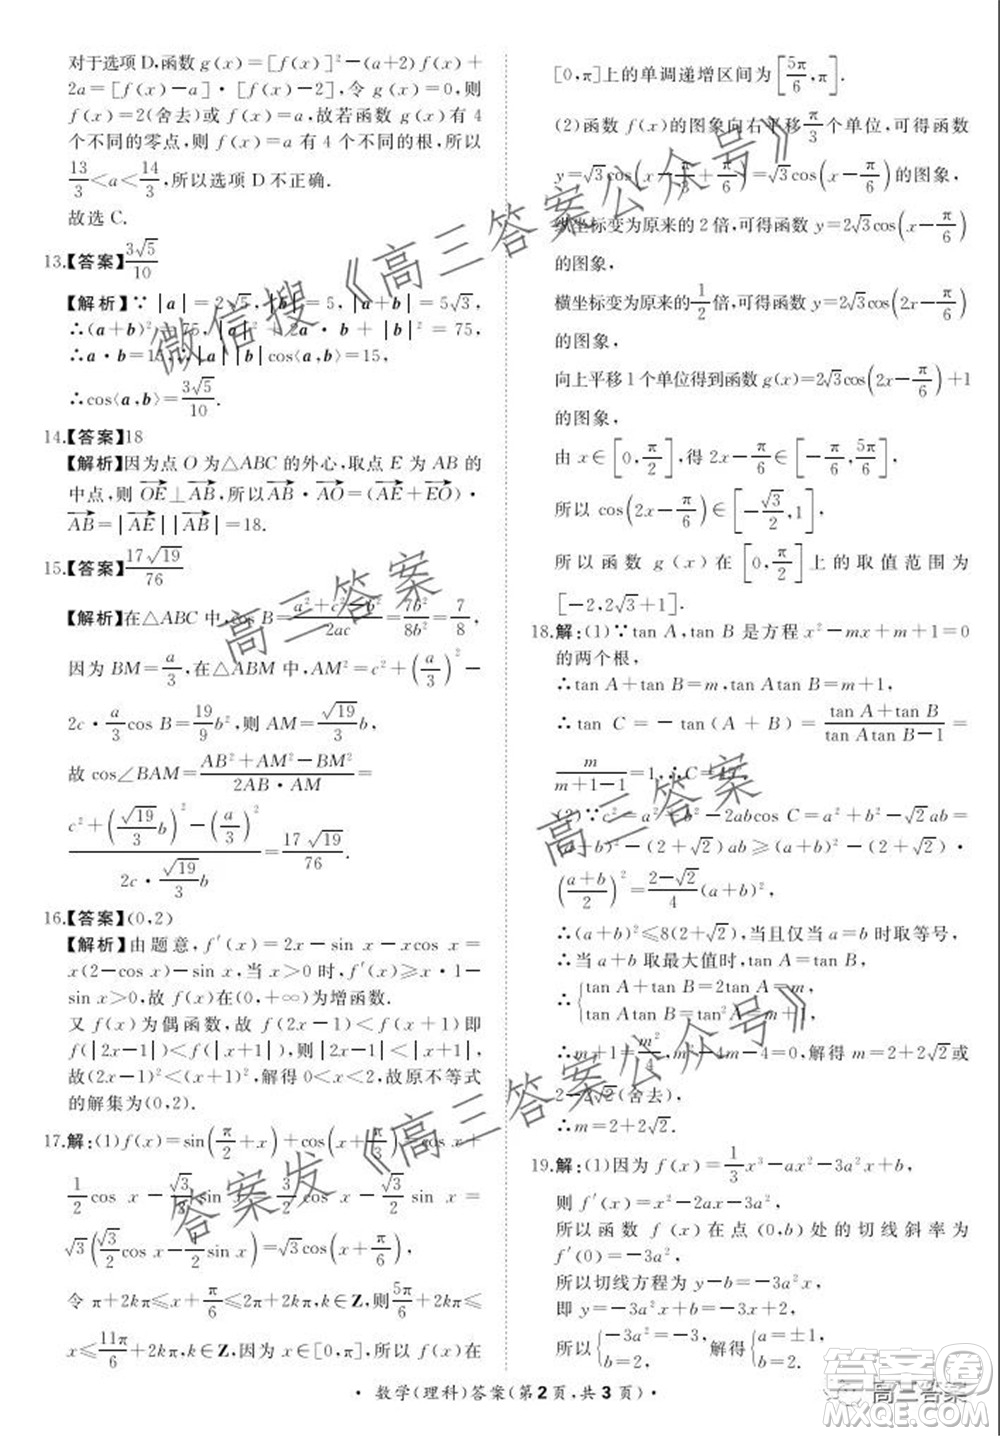 对于选项 D,函数 g(x)=[f(x)]²-(a+2)f(x)+
2a=[f(x)-a]·[f(x)-2],令 g(x)=0,则
f(x)=2(舍去)或 f(x)=a,故若函数 g(x)有 4
个不同的零点,则 f(x)=a 有 4 个不同的根,所以
13/3<a<14/3,所以选项 D 不正确.
故选 C.
13.【答案】3√5/10
【解析】∵|a|=2√5,|b|=5,|a+b|=5√3,
∴(a+b)²=75,|a|²+2a·b+|b|²=75,
∴a·b=15,∴|a||b|cos⟨a,b⟩=15,
∴cos⟨a,b⟩=3√5/10.
14.【答案】18
【解析】因为点 O 为△ABC 的外心,取点 E 为 AB 的
中点,则 OE⊥AB,所以AB·AO=(AE+EO)·
AB=|AE||AB|=18.
15.【答案】17√19/76
【解析】在△ABC 中,cos B=(a²+c²-b²)/2ac=7b²/8b²=7/8,
因为 BM=a/3,在△ABM 中,AM²=c²+(a/3)²-
2c·a/3 cos B=19/9 b²,则 AM=√19/3 b,
故 cos∠BAM=(AB²+AM²-BM²)/(2AB·AM)=
(c²+(√19/3 b)²-(a/3)²)/(2c·√19/3 b)=17√19/76.
16.【答案】(0,2)
【解析】由题意,f′(x)=2x-sin x-xcos x=
x(2-cos x)-sin x,当 x>0 时,f′(x)≥x·1-
sin x>0,故 f(x)在(0,+∞)为增函数.
又 f(x)为偶函数,故 f(2x-1)<f(x+1)即
f(|2x-1|)<f(|x+1|),
故(2x-1)²<(x+1)²,解得 0<x<2,故原不等式
的解集为(0,2).
17.解:(1)f(x)=sin(π/2+x)+cos(π/3+x)=cos x+
1/2 cos x-√3/2 sin x=3/2 cos x-√3/2 sin x=
√3(√3/2 cos x-1/2 sin x)=√3cos(x+π/6),
令 π+2kπ≤x+π/6≤2π+2kπ,k∈Z,则5π/6+2kπ≤
x≤11π/6+2kπ,k∈Z,因为 x∈[0,π],所以 f(x)在
[0,π]上的单调递增区间为[5π/6,π].
(2)函数 f(x)的图象向右平移π/3个单位,可得函数
y=√3cos(x-π/3+π/6)=√3cos(x-π/6)的图象,
纵坐标变为原来的 2 倍,可得函数 y=2√3cos(x-π/6)
的图象,
横坐标变为原来的1/2倍,可得函数 y=2√3cos(2x-π/6)
的图象,
向上平移 1 个单位得到函数 g(x)=2√3cos(2x-π/6)+1
的图象,
由 x∈[0,π/2],得 2x-π/6∈[-π/6,5π/6],
所以 cos(2x-π/6)∈[-√3/2,1],
所以函数 g(x)在[0,π/2]上的取值范围为
[-2,2√3+1].
18.解:(1)∵tan A,tan B 是方程 x²-mx+m+1=0
的两个根,
∴tan A+tan B=m,tan Atan B=m+1,
∴tan C=-tan(A+B)=(tan A+tan B)/(tan Atan B-1)=
m/(m+1-1)=1,∴C=π/4.
(2)∵c²=a²+b²-2abcos C=a²+b²-√2ab=
(a+b)²-(2+√2)ab≥(a+b)²-(2+√2)
((a+b)/2)²=(2-√2)/4(a+b)²,
∴(a+b)²≤8(2+√2),当且仅当 a=b 时取等号,
∴当 a+b 取最大值时,tan A=tan B,
∴{tan A+tan B=2tan A=m,
tan Atan B=tan²A=m+1,
∴m+1=m²/4,m²-4m-4=0,解得 m=2+2√2或
2-2√2(舍去)
∴m=2+2√2.
19.解:(1)因为 f(x)=1/3x³-ax²-3a²x+b,
则 f′(x)=x²-2ax-3a²,
所以函数 f(x)在点(0,b)处的切线斜率为
f′(0)=-3a²,
所以切线方程为 y-b=-3a²x,
即 y=-3a²x+b,
所以{-3a²=-3,b=2, 解得{a=±1,b=2.
·数学(理科)答案(第 2 页,共 3 页)·
微信搜《高三答案公众号》
高三答案
高三答案
答案发《高三答案公众号》
高三答案
答案圈
MXQE.COM